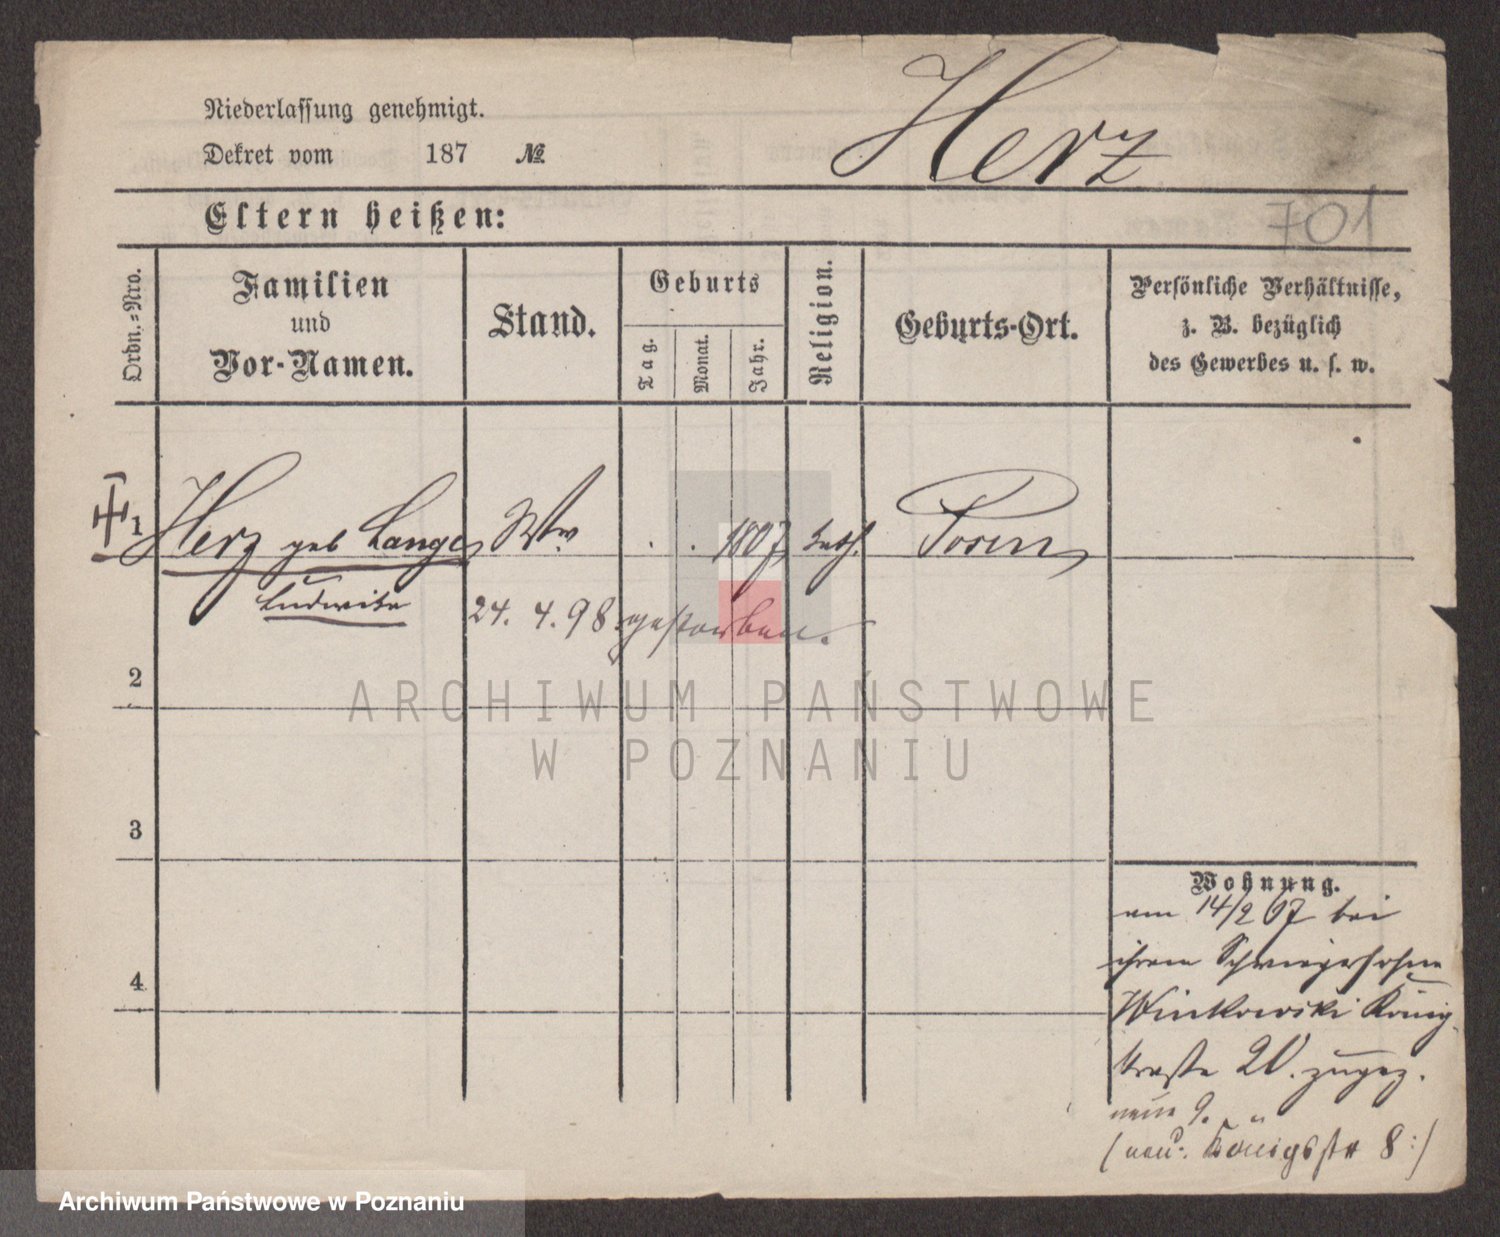 Herz
Niederlassung genehmigt.
Dekret vom 187 №
Eltern heißen:
701
Ordn.-Nro.
Familien
und
Vor-Namen.
Stand.
Geburts
Tag.
Monat.
Jahr.
Religion.
Geburts-Ort.
Persönliche Verhältnisse,
z. B. bezüglich
des Gewerbes u. s. w.
1 Herz geb Lange Ww. . . 1807 kath. Posen
Ludwika 24. 4. 98. gestorben.
2
ARCHIWUM PAŃSTWOWE
W POZNANIU
3
4
Wohnung.
am 14/2 67 bei
ihrem Schwiegersohne
Winkowski König-
straße 20. zugez.
neue 9.
(neu: Königsstr 8:)
Archiwum Państwowe w Poznaniu